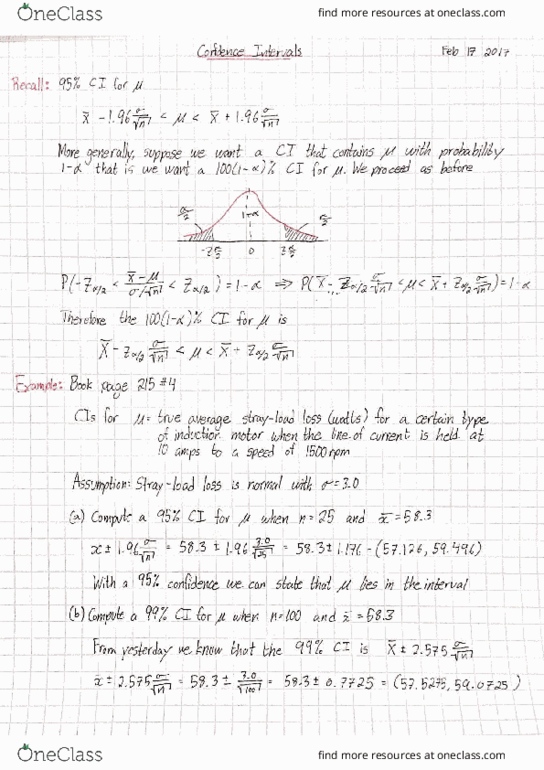 OneClass
find more resources at oneclass.com
Confidence Intervals
Feb 17 2017
Recall: 95% CI for μ
x̄ - 1.96 σ/√n < μ < x̄ + 1.96 σ/√n
More generally, suppose we want a CI that contains μ with probability
1-α that is we want a 100(1-α)% CI for μ. We proceed as before
α/2
1-α
α/2
-z α/2
0
z α/2
P(-Zα/2 < (x̄ - μ)/(σ/√n) < Zα/2) = 1-α ⟹ P(x̄ - Zα/2 σ/√n < μ < x̄ + Zα/2 σ/√n) = 1-α
Therefore the 100(1-α)% CI for μ is
x̄ - Zα/2 σ/√n < μ < x̄ + Zα/2 σ/√n
Example: Book page 215 #4
CIs for μ = true average stray-load loss (watts) for a certain type
of induction motor when the line of current is held at
10 amps to a speed of 1500 rpm
Assumption: Stray-load loss is normal with σ=3.0
(a) Compute a 95% CI for μ when n=25 and x̄=58.3
x ± 1.96 σ/√n = 58.3 ± 1.96 3.0/√25 = 58.3 ± 1.176 - (57.126, 59.496)
With a 95% confidence we can state that μ lies in the interval
(b) Compute a 99% CI for μ when n=100 and x̄=58.3
From yesterday we know that the 99% CI is x̄ ± 2.575 σ/√n
x̄ ± 2.575 σ/√n = 58.3 ± 3.0/√100 = 58.3 ± 0.7725 = (57.5275, 59.0725)
OneClass
find more resources at oneclass.com